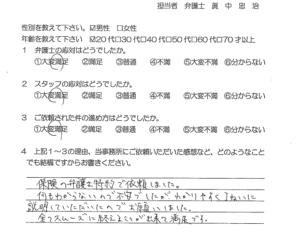 担当者 弁護士 眞中忠治
性別を教えて下さい。☑男性 □女性
年齢を教えて下さい ☑20代□30代□40代□50代□60代□70才以上
1 弁護士の応対はどうでしたか。
①大変満足 ②満足 ③普通 ④不満 ⑤大変不満 ⑥分からない
2 スタッフの応対はどうでしたか。
①大変満足 ②満足 ③普通 ④不満 ⑤大変不満 ⑥分からない
3 ご依頼された件の進め方はどうでしたか。
①大変満足 ②満足 ③普通 ④不満 ⑤大変不満 ⑥分からない
4 上記1~3の理由、当事務所にご依頼いただいた感想など、どのようなこと
でも結構ですからお書きください。
保険の弁護士特約で依頼しました。
何もわからないので不安でしたがわかりやすく丁ねいに
説明していただいたのでお願いしました。
全てスムーズに終えることが出来て満足です。